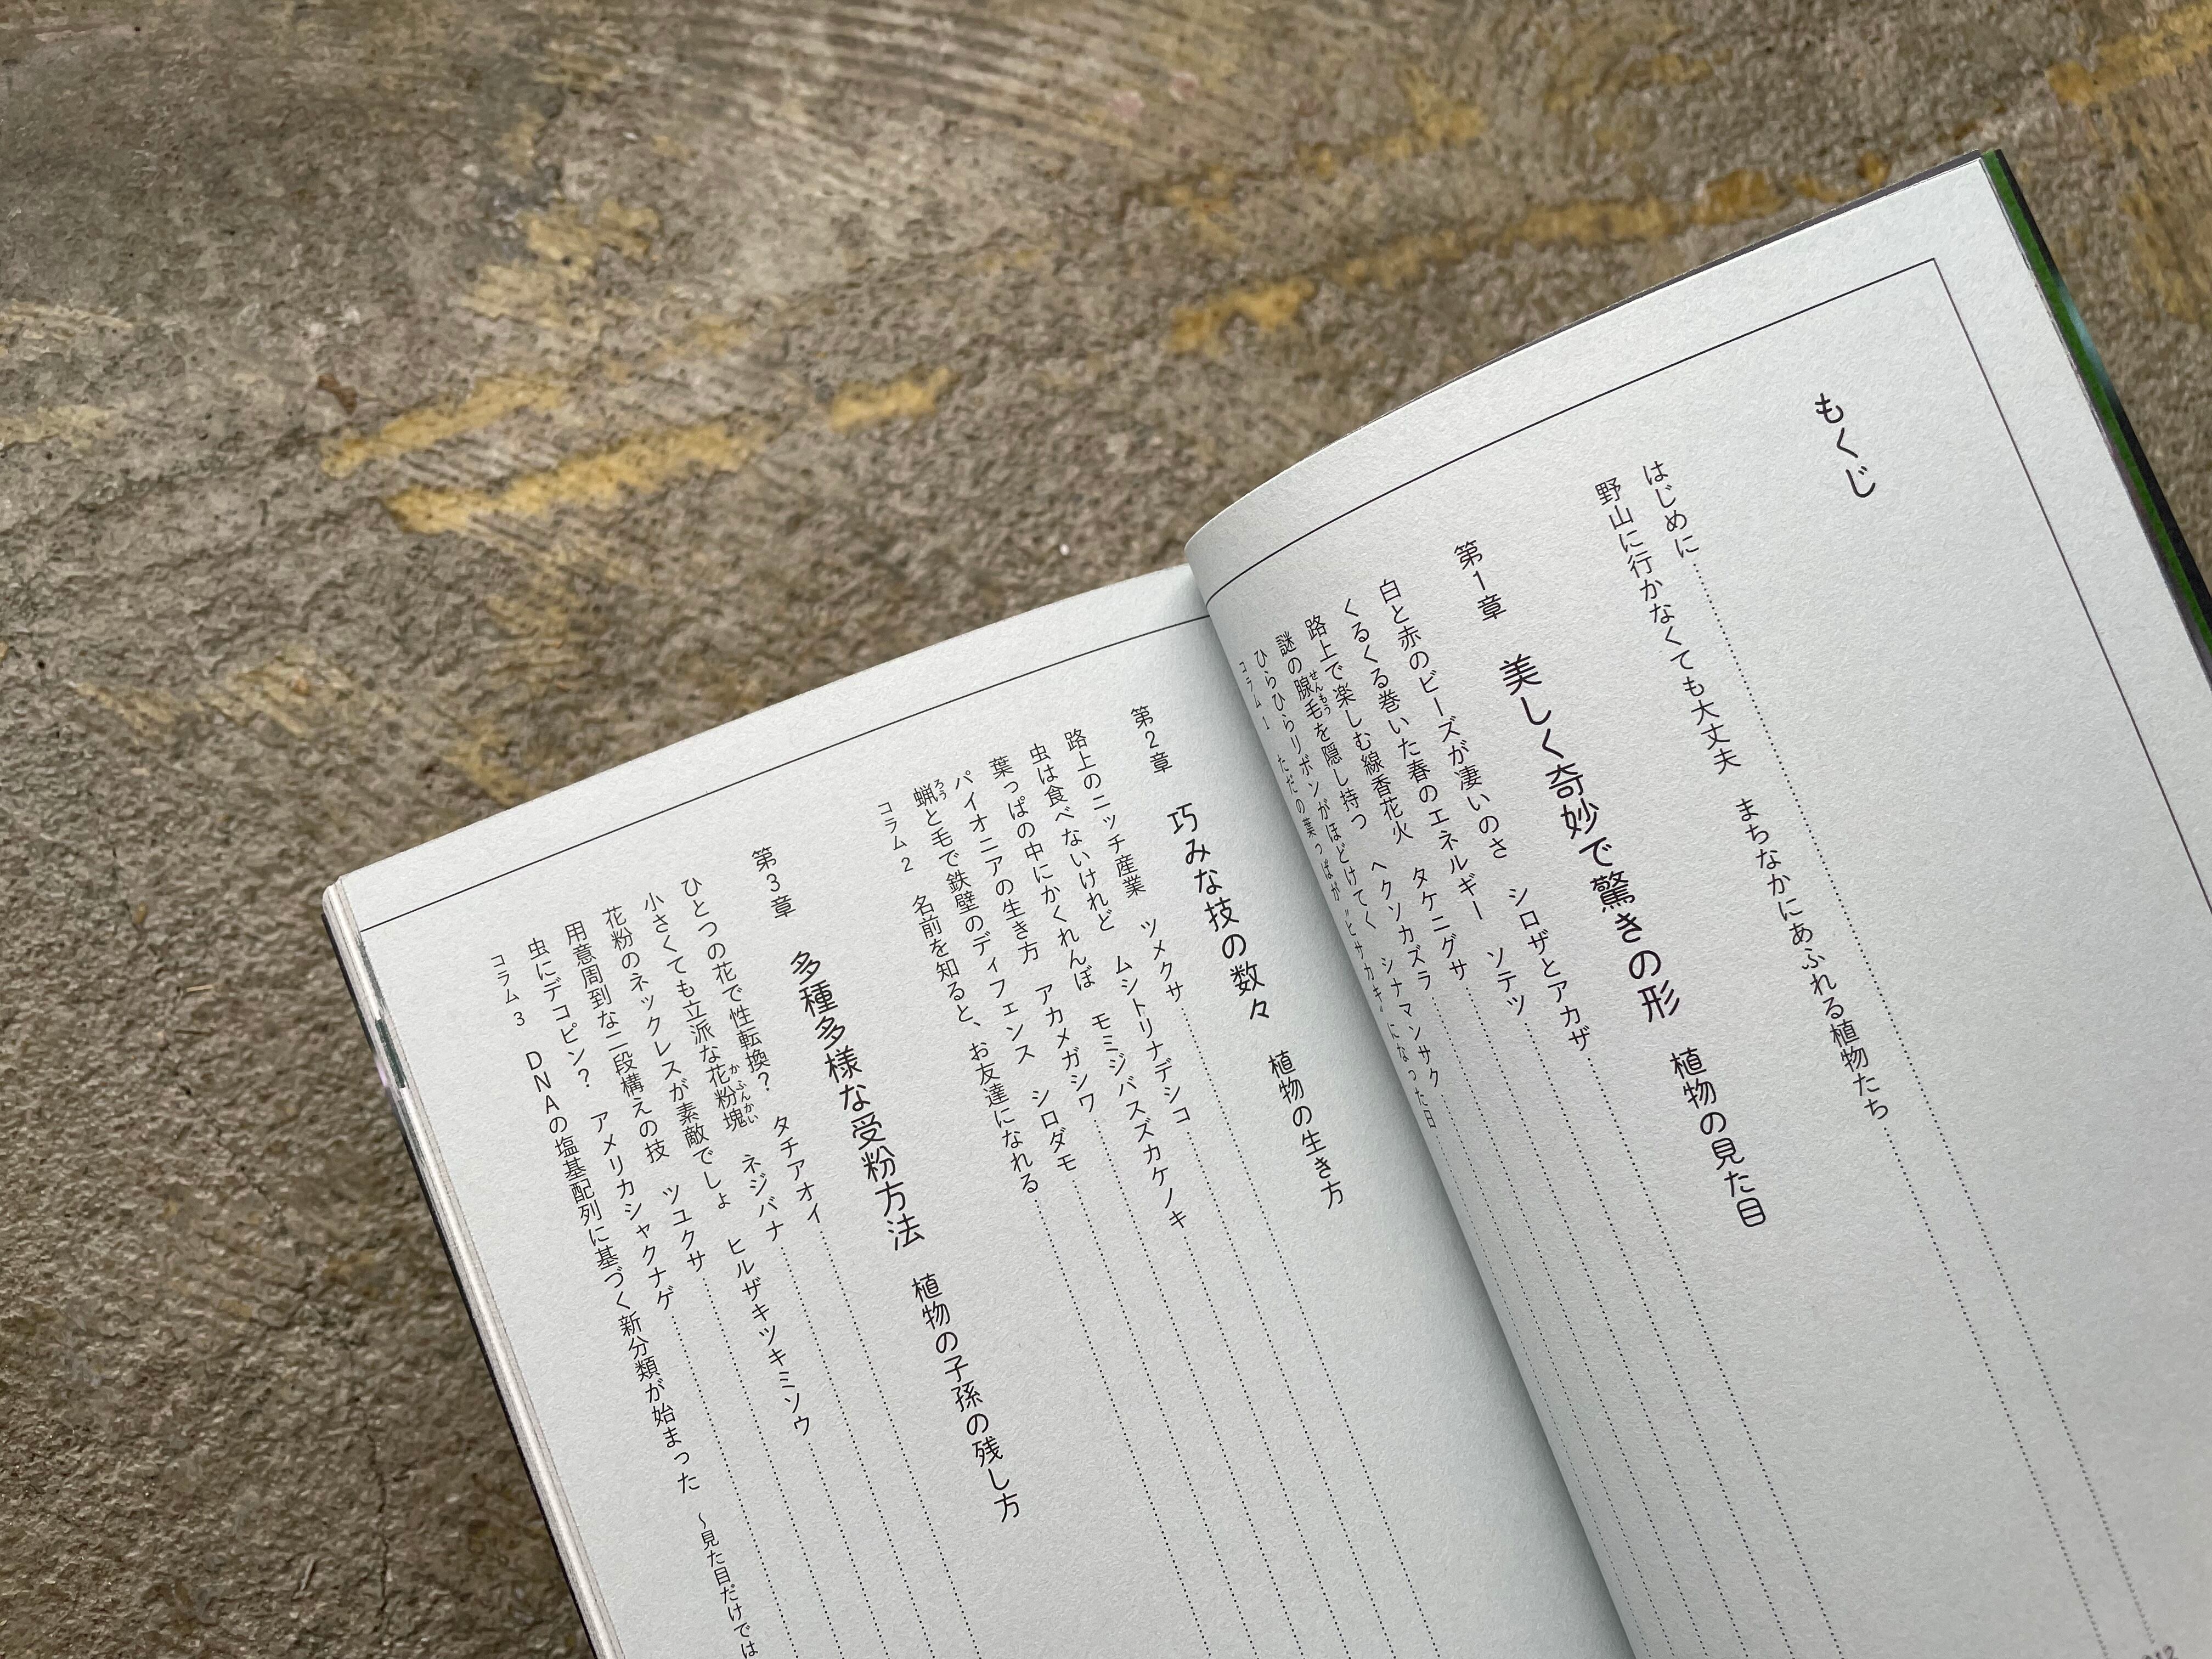 もくじ
はじめに
野山に行かなくても大丈夫　まちなかにあふれる植物たち
第1章　美しく奇妙で驚きの形　植物の見た目
白と赤のビーズが凄いのさ　シロザとアカザ
くるくる巻いた春のエネルギー　ソテツ
路上で楽しむ線香花火　タケニグサ
謎の腺毛を隠し持つ　ヘクソカズラ
ひらひらリボンがほどけてく　シナマンサク
コラム1　ただの葉っぱが〝ヒサカキ〟になった日
第2章　巧みな技の数々　植物の生き方
路上のニッチ産業　ツメクサ
虫は食べないけれど　ムシトリナデシコ
葉っぱの中にかくれんぼ　モミジバスズカケノキ
パイオニアの生き方　アカメガシワ
蝋と毛で鉄壁のディフェンス　シロダモ
コラム2　名前を知ると、お友達になれる
第3章　多種多様な受粉方法　植物の子孫の残し方
ひとつの花で性転換？　タチアオイ
小さくても立派な花粉塊　ネジバナ
花粉のネックレスが素敵でしょ　ヒルザキツキミソウ
用意周到な二段構えの技　ツユクサ
虫にデコピン？　アメリカシャクナゲ
コラム3　DNAの塩基配列に基づく新分類が始まった　〜見た目だけでは